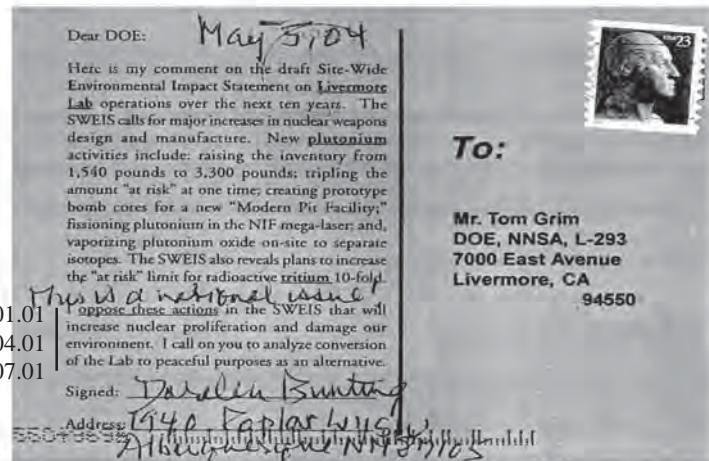 Dear DOE: May 5, 04
Here is my comment on the draft Site-Wide
Environmental Impact Statement on Livermore
Lab operations over the next ten years. The
SWEIS calls for major increases in nuclear weapons
design and manufacture. New plutonium
activities include: raising the inventory from
1,540 pounds to 3,300 pounds; tripling the
amount "at risk" at one time; creating prototype
bomb cores for a new "Modern Pit Facility;"
fissioning plutonium in the NIF mega-laser; and,
vaporizing plutonium oxide on-site to separate
isotopes. The SWEIS also reveals plans to increase
the "at risk" limit for radioactive tritium 10-fold.
This is a national issue!
I oppose these actions in the SWEIS that will
increase nuclear proliferation and damage our
environment. I call on you to analyze conversion
of the Lab to peaceful purposes as an alternative.
Signed: Bunting
Address: 1940
Albuquerque NM
01.01
04.01
07.01
USA 23
To:
Mr. Tom Grim
DOE, NNSA, L-293
7000 East Avenue
Livermore, CA
94550